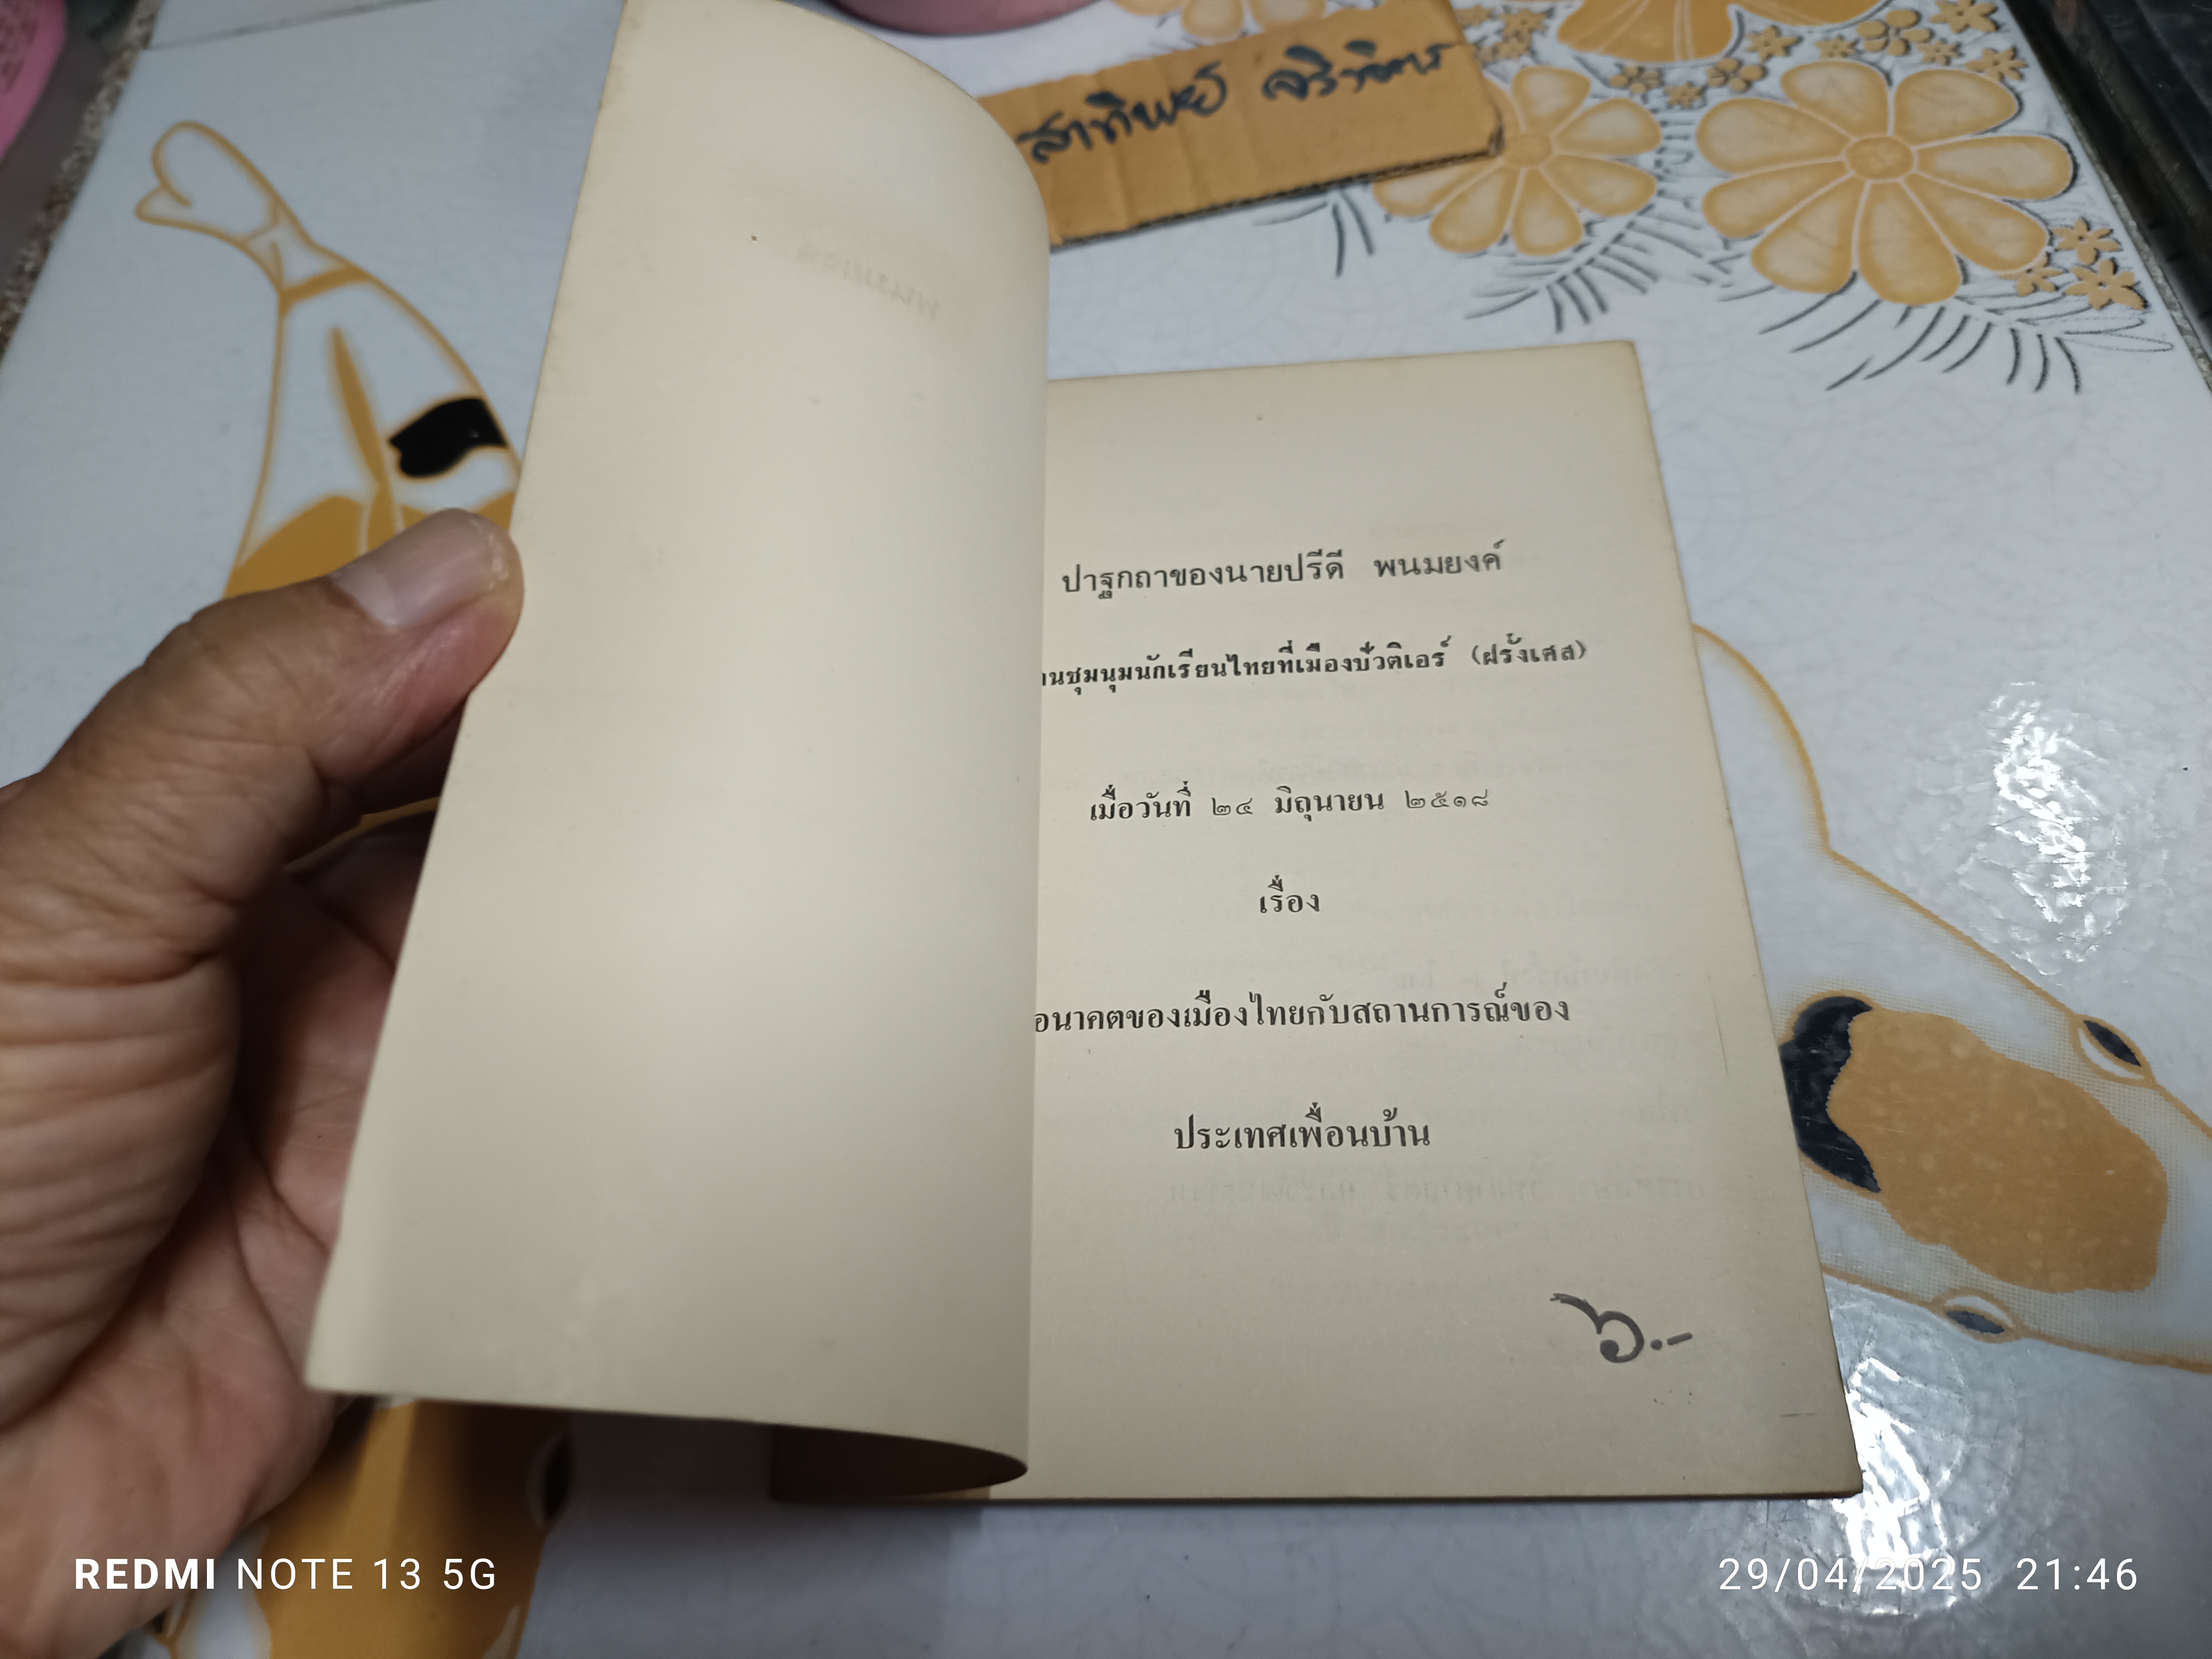 สาทิพย์
ปาฐกถาของนายปรีดี พนมยงค์
านชุมนุมนักเรียนไทยที่เมืองปัวติเอร์ (ฝรั่งเศส)
เมื่อวันที่ ๒๔ มิถุนายน ๒๕๑๘
เรื่อง
อนาคตของเมืองไทยกับสถานการณ์ของ
ประเทศเพื่อนบ้าน
๖.-
REDMI NOTE 13 5G
29/04/2025 21:46